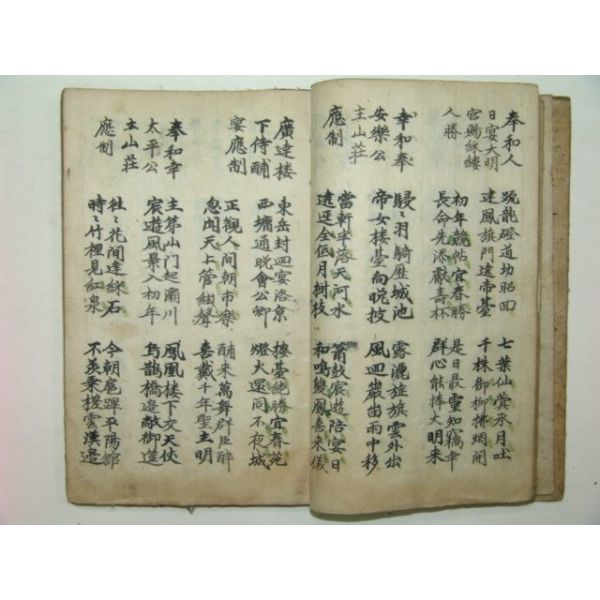 奉和人
日宴大明
宮賜綵縷
人勝
疏龍磴道切昭回
建鳳旗門遶帝臺
七葉仙蓂承月吐
千株御柳拂烟開
初年競帖宜春勝
長命先添獻壽杯
是日最靈知竊幸
群心能捧大明來
幸和奉
安樂公
主山莊
應制
駸〻羽騎歷城池
帝女樓臺向晚披
霧灑旌旗雲外出
風回巖岫雨中移
當軒半落天河水
遶逕全低月樹枝
簫鼓宸遊陪宴日
和鳴雙鳳喜來儀
廣達樓
下侍酺
宴應制
東岳封回宴洛京
西墉通晚會公卿
樓臺絶勝宜春苑
燈火還同不夜城
正覩人間朝市樂
忽聞天上管絃聲
酺來萬舞群臣醉
喜戴千年聖主明
奉和幸
太平公
主山莊
應制
主第山門起灞川
宸遊風景入初年
鳳凰樓下交天仗
烏鵲橋邊敞御筵
往〻花間逢綵石
時〻竹裡見紅泉
今朝扈蹕平陽館
不羨乘槎雲漢邊